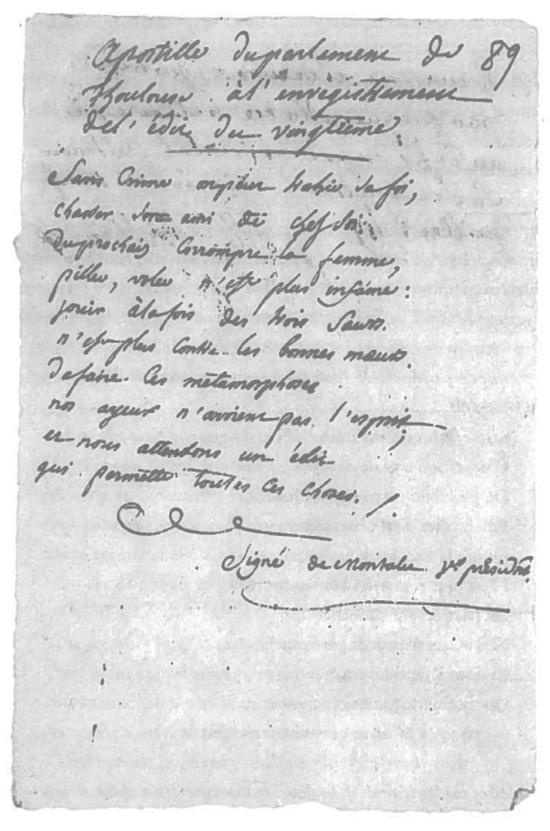 Apostille du parlement de 89
Thoulouse à l'enregistrement
de l'édit du vingtième
Sans Crime on peut trahir sa foi,
chasser son ami de chez soi
Du prochain Corrompre la femme,
piller, voler n'est plus infame:
jouir à la fois des trois Sœurs
n'est plus Contre les bonnes mœurs.
De faire Ces métamorphoses
nos ayeux n'avoient pas l'esprit,
et nous attendons un édit
qui permette toutes Ces choses./.
Signé de président